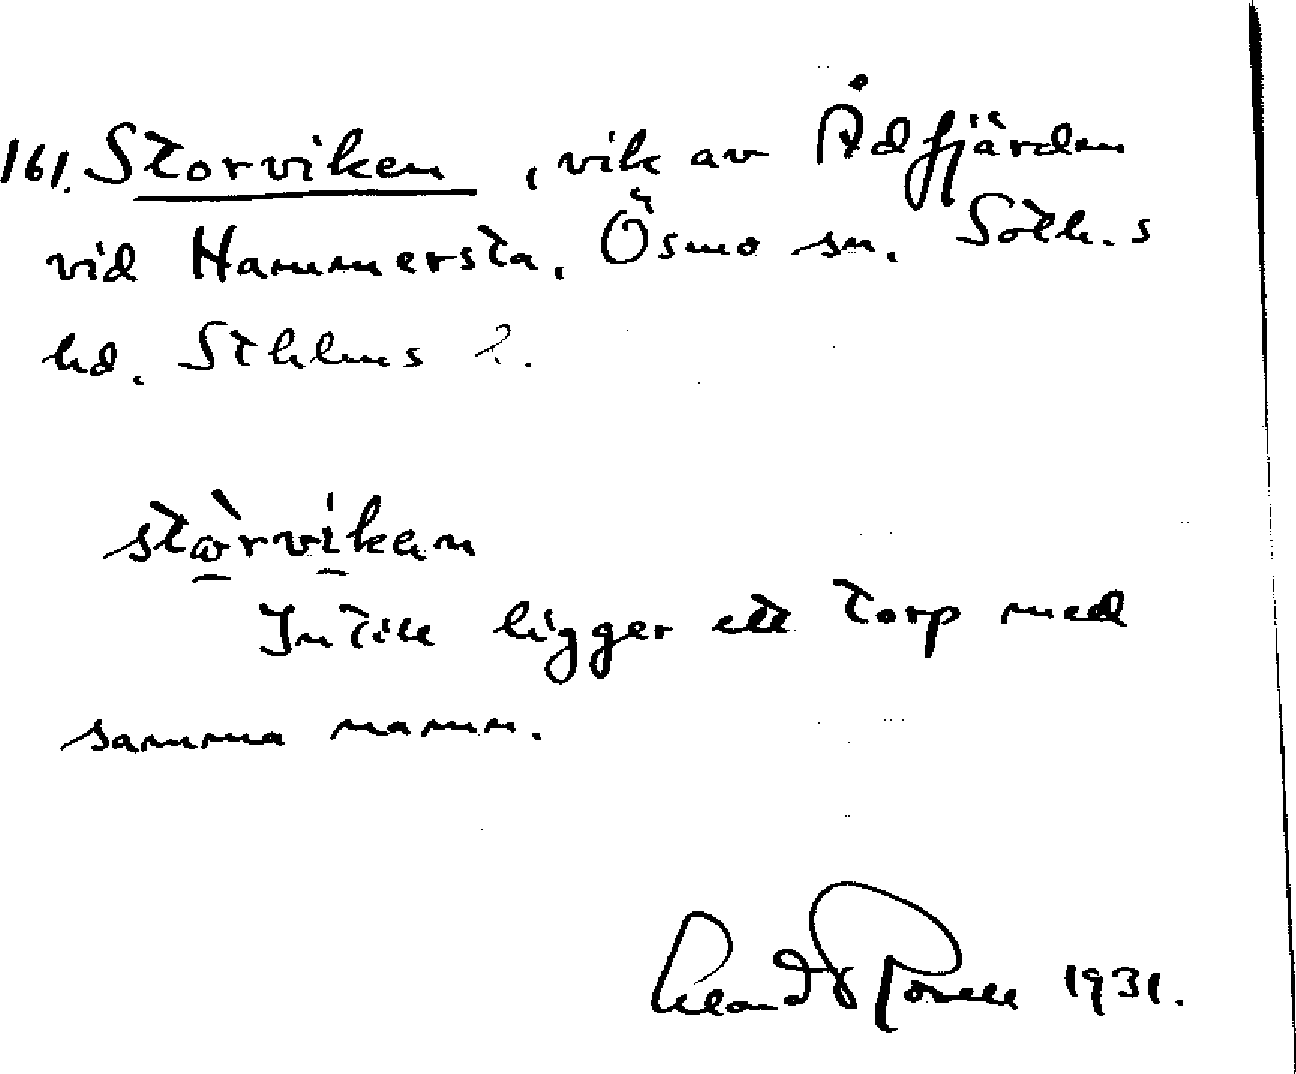 161. Storviken, vik av Ådfjärden
vid Hammersta, Ösmo sn. Soth.s
hd. Sthlms l.
stòrvíkan
Intill ligger ett torp med
samma namn.
1931.